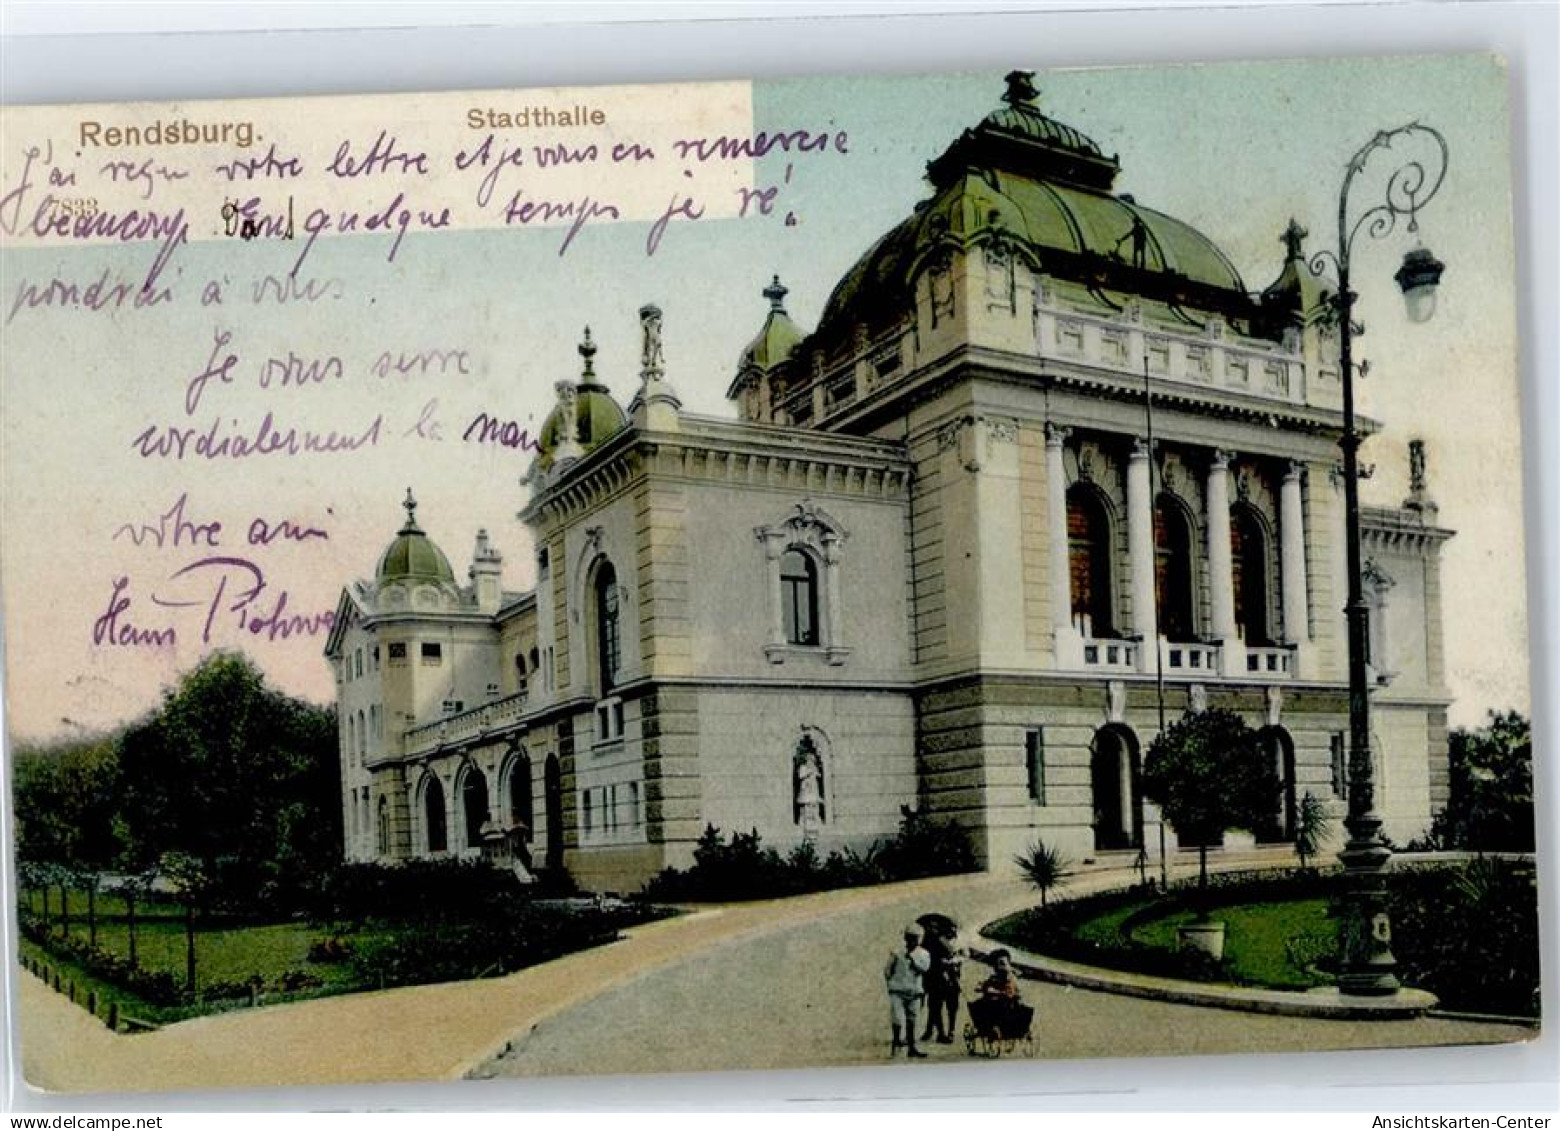 Rendsburg. Stadthalle
J'ai reçu votre lettre et je vous en remercie
7833
beaucoup. En quelque temps je ré„
pondrai à vous.
Je vous serre
cordialement la main
votre ami
Hans
www.delcampe.net
Ansichtskarten-Center